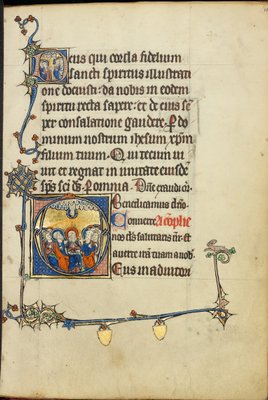 Deus qui corda fidelium
sancti spiritus illustrati
one docuisti. da nobis in eodem
spiritu recta sapere. et de eius sem
per consolatione gaudere. P do
minum nostrum ihesum xpm
filium tuum. Qui tecum ui
uit et regnat in unitate eiusdē
sps sci ds P omnia. Dne exaudi or.
Benedicamus dno.
Conuerte A cōplie
nos ds salutaris nr. et
auerte irā tuam a nob.
Deus in adiutori